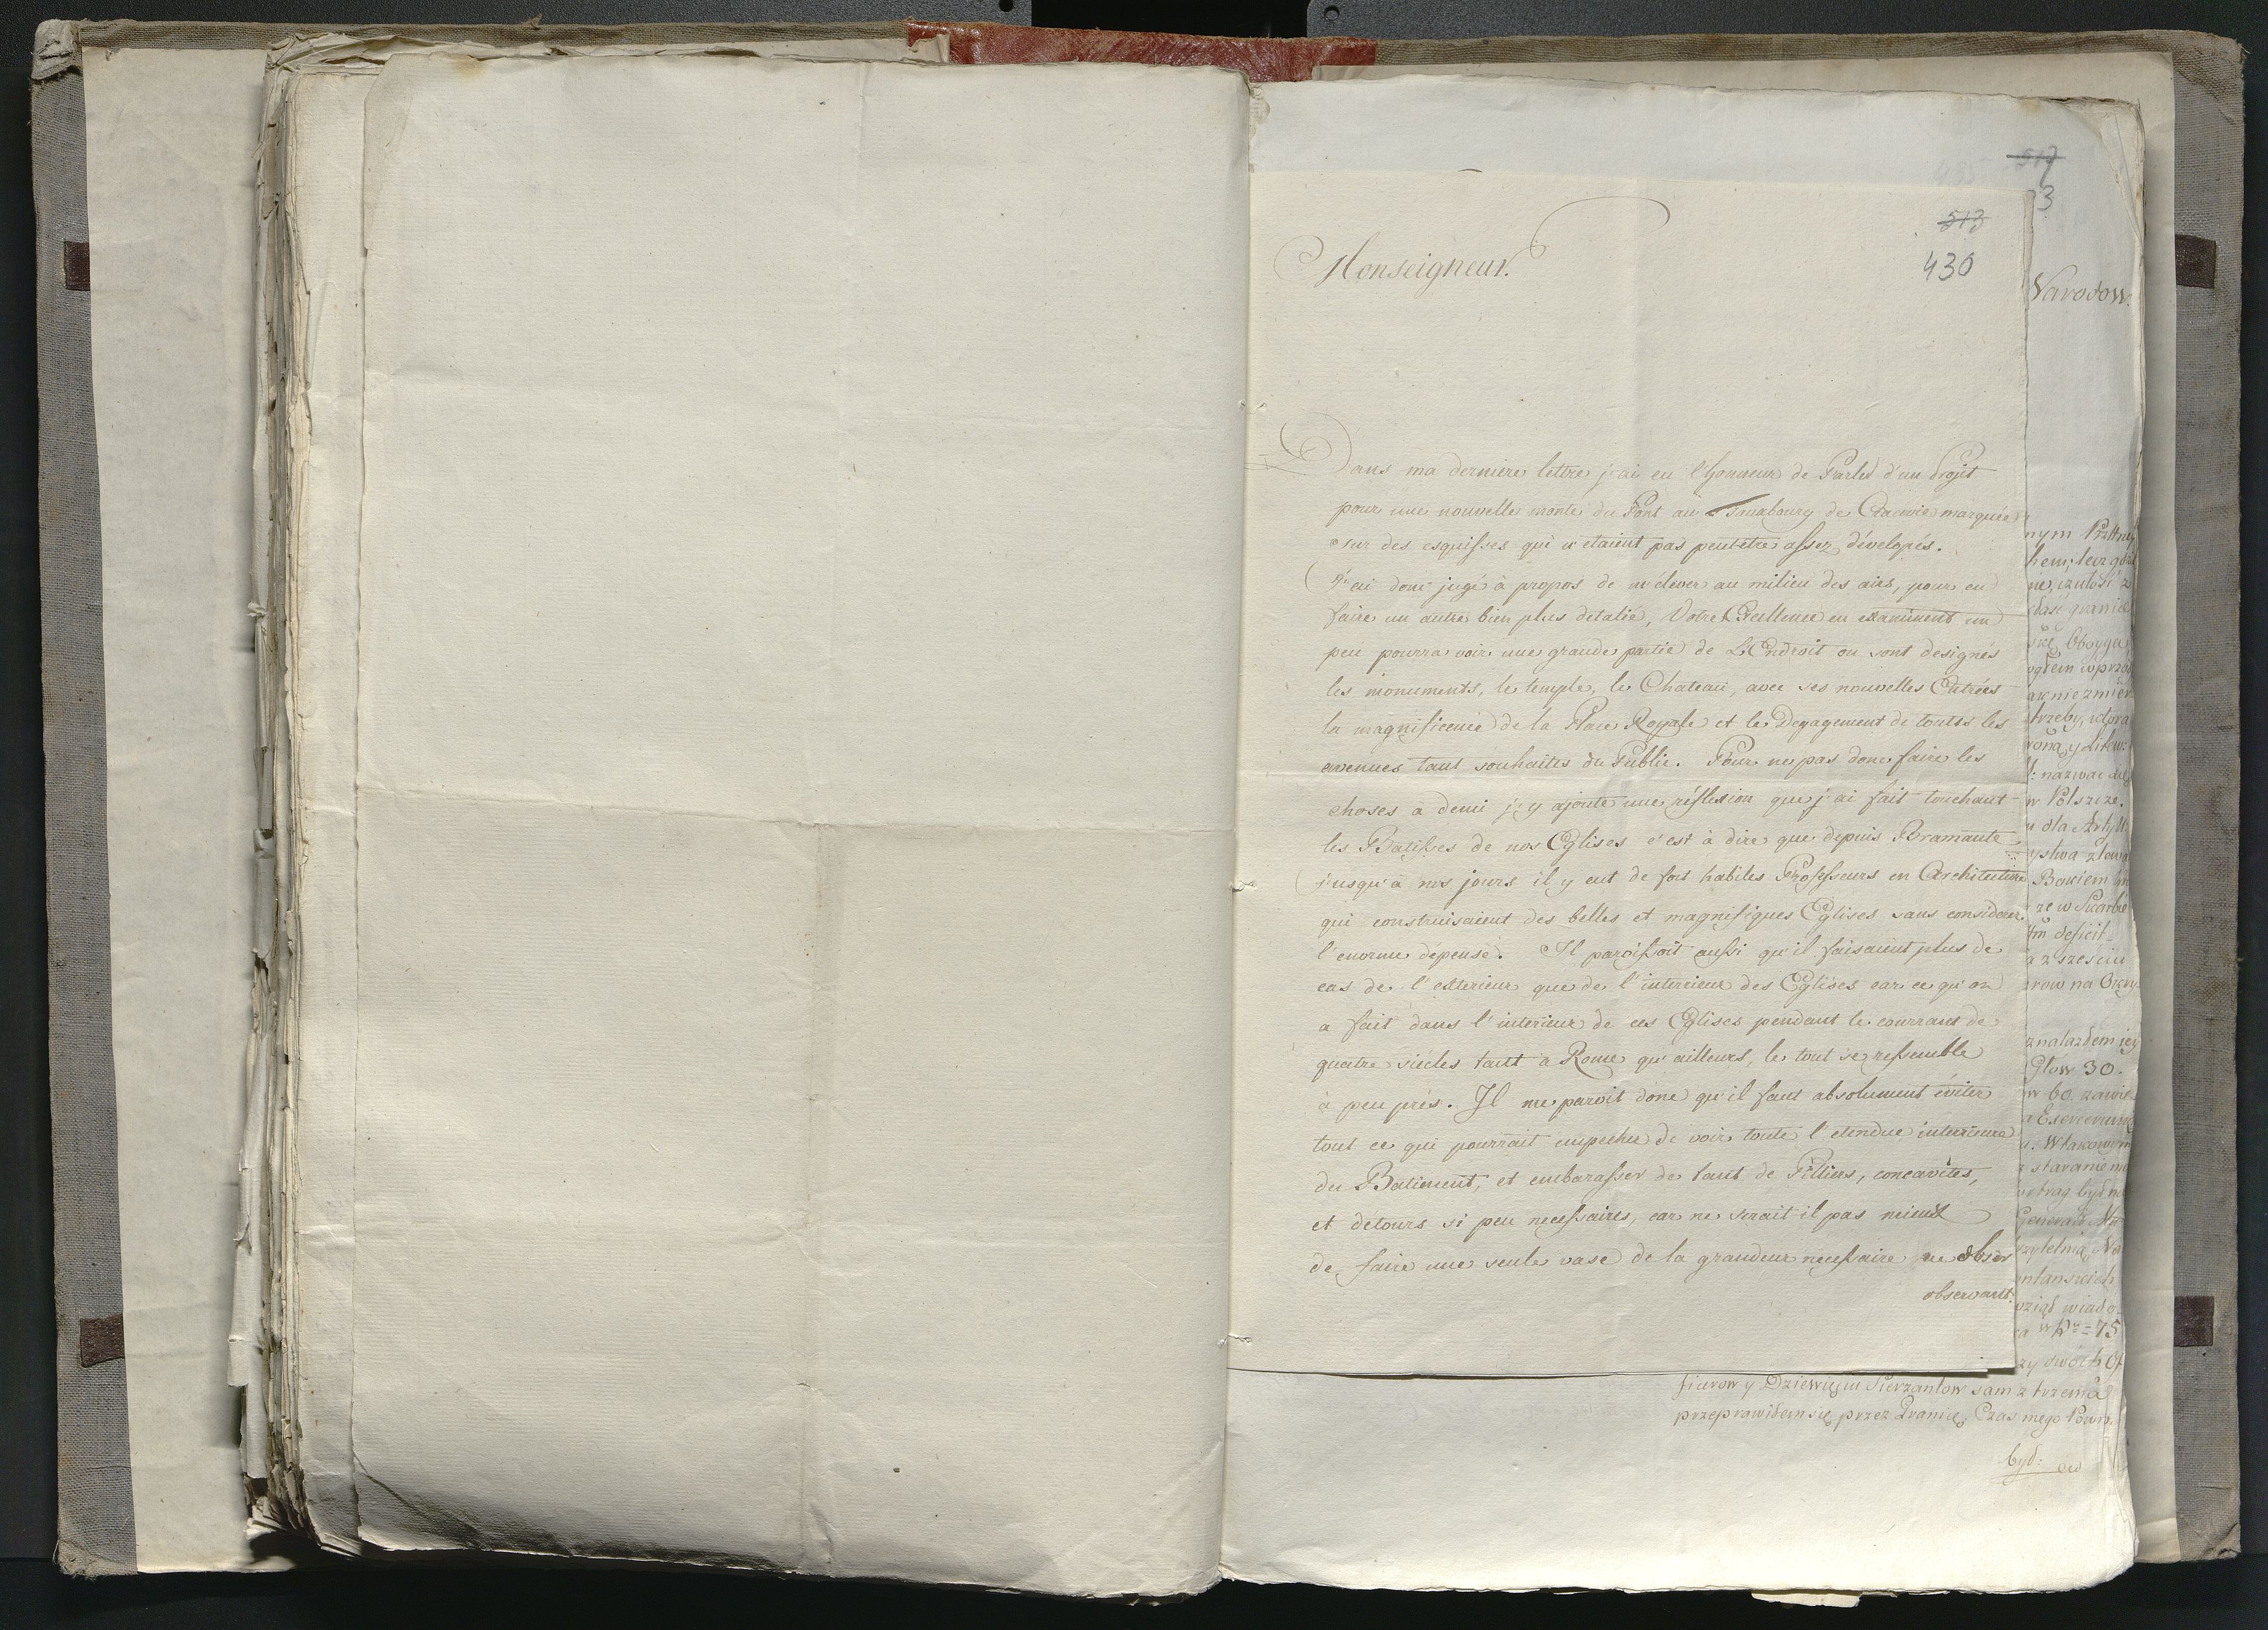 517
3
513
430
Monseigneur.
Dans ma derniere lettre j'ai eu l'honneur de Parler d'un Projet
pour une nouvelle monté du Pont au Fauxbourg de Cracovie marquée
sur des esquisses qui n'etaient pas peutetre assez dévelopés.
J'ai donc jugé à propos de m'élever au milieu des airs, pour en
faire un autre bien plus detalié, Votre Excellence en examinent un
peu pourra voir une grande partie de L'Endroit ou sont designés
les monuments, le temple, le Chateau, avec ses nouvelles Entrées
la magnificence de la Place Royale et le Degagement de toutes les
avenues tant souhaités du Public. Pour ne pas donc faire les
choses a demi j'y ajoute une réflexion que j'ai fait touchant
les Batisses de nos Eglises c'est à dire que depuis Bramante
jusqu'à nos jours il y eut de fort habiles Professeurs en Architecture
qui construisaient des belles et magnifiques Eglises sans considerer
l'enorme dépense. Il paroissoit aussi qu'il faisaient plus de
cas de l'exterieur que de l'interieur des Eglises car ce qu'on
a fait dans l'interieur de ces Eglises pendant le courrant de
quatre siécles tant à Rome qu'ailleurs, le tout se ressemble
à peu prés. Il me paroit donc qu'il faut absolument éviter
tout ce qui pourrait empecher de voir toute l'etendue interieure
du Batiment, et embarasser de tant de Pilliers, concavités,
et détours si peu necessaires, car ne serait-il pas mieux
de faire une seule vase de la grandeur necessaire ne obser
observant:
Narodow
nym
ne, czułość z
się Oboyga
w Polszcze.
Bowiem
ze w Skarbie
deficit
znalazłem iey
Głow 30.
w 60.
wziął wiado
75
ficerow y Dziewięciu Sierzantow sam z trzema
przeprawiłem się przez Granicę, Czas mego Pow
był: